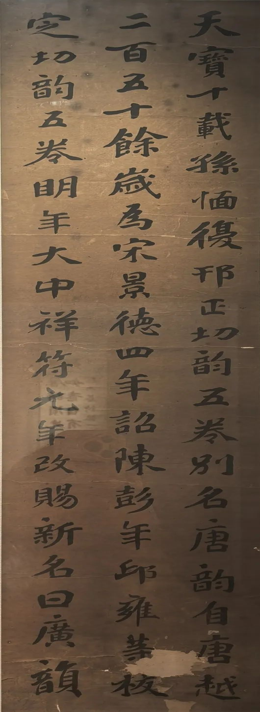 天寶十載孫愐復刊正切韵五卷別名唐韵自唐越
二百五十餘歲爲宋景德四年詔陳彭年邱雍等校
定切韵五卷明年大中祥符元年改賜新名曰廣韻